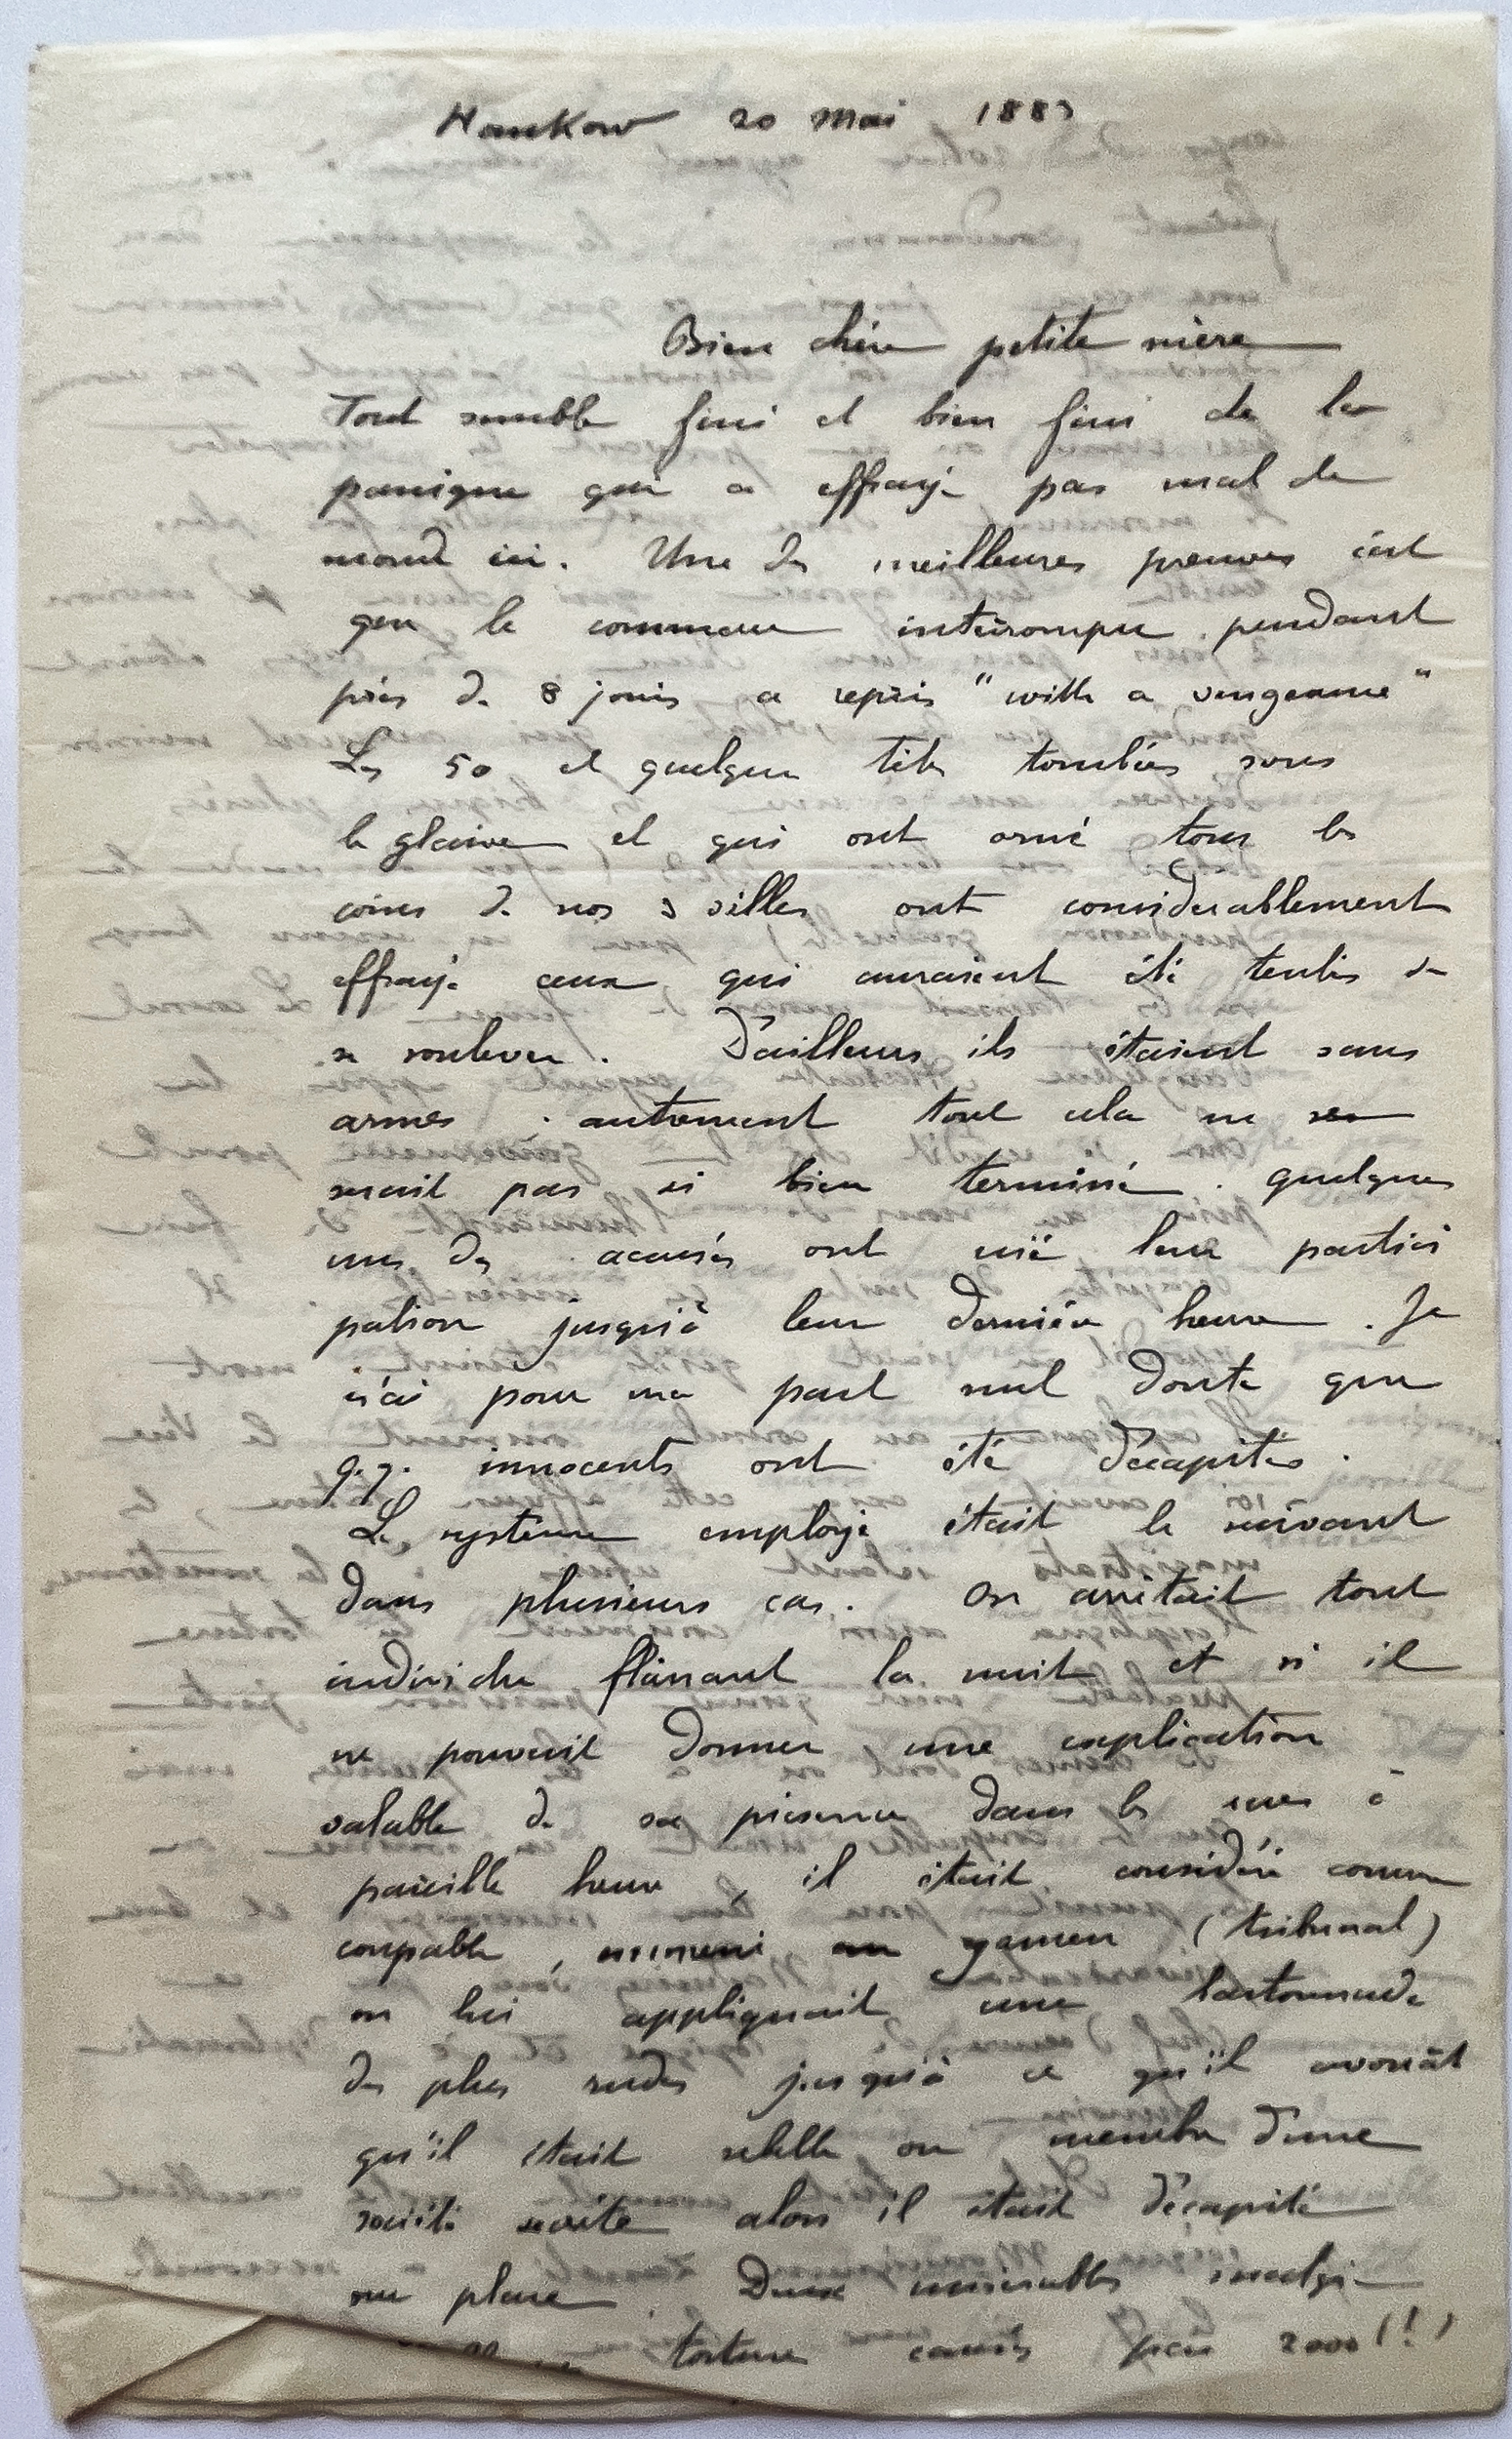 Hankow 20 mai 1883
Bien chère petite mère
Tout semble fini et bien fini de la
panique qui a effrayé pas mal de
monde ici. Une des meilleures preuves c'est
que le commerce interrompu pendant
près de 8 jours a repris "with a vengeance"
Les 50 et quelques têtes tombées sous
le glaive et qui ont orné tous les
coins de nos 3 villes ont considérablement
effrayé ceux qui auraient été tentés de
se soulever. D'ailleurs ils étaient sans
armes ; autrement tout cela ne se
serait pas si bien terminé. Quelques
uns des accusés ont nié leur partici
pation jusqu'à leur dernière heure. Je
n'ai pour ma part nul doute que
q.q. innocents ont été décapités.
Le système employé était le suivant
dans plusieurs cas. On arrêtait tout
individu flânant la nuit et si il
ne pouvait donner une explication
valable de sa présence dans les rues à
pareille heure, il était considéré comme
coupable, au yamen (tribunal)
on lui appliquait une bastonnade
des plus rudes jusqu'à ce qu'il avouât
qu'il était rebelle ou membre d'une
société secrète alors il était décapité
sur place. Deux misérables malgré
torture causés par 2000 (!)